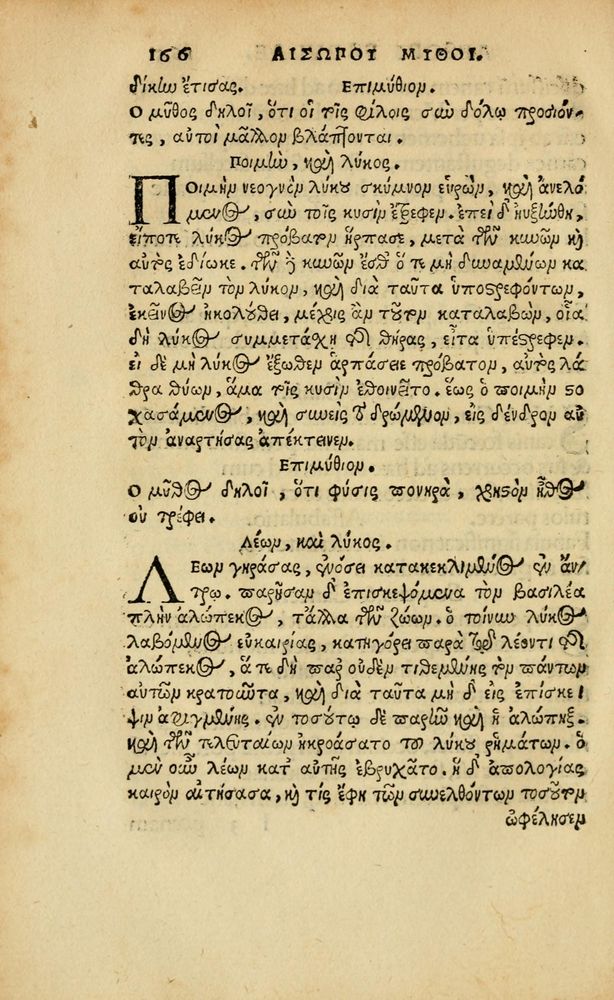 166 ΑΙΣΩΠΟΥ ΜΥΘΟΙ.
δίκην ἔτισας. Ἐπιμύθιον.
Ο μῦθος δηλοῖ, ὅτι οἱ τοῖς φίλοις σὺν δόλῳ προσιόν
τες, αὐτοὶ μᾶλλον βλάπτονται.
Ποιμὴν, καὶ λύκος.
ΠΟιμὴν νεογνὸν λύκου σκύμνον εὑρὼν, καὶ ἀνελό
μενος, σὺν τοῖς κυσὶν ἔτρεφεν. ἐπεὶ δ' ηὐξήθη,
εἴποτε λύκος πρόβατον ἥρπασε, μετὰ τῶν κυνῶν καὶ
αὐτὸς ἐδίωκε. τῶν δὲ κυνῶν ἔσθ' ὅτε μὴ δυναμένων κα
ταλαβεῖν τὸν λύκον, καὶ διὰ ταῦτα ὑποστρεφόντων,
ἐκεῖνος ἠκολούθει, μέχρις ἂν τοῦτον καταλαβὼν, οἷα
δὴ λύκος συμμετάσχῃ τῆς θήρας, εἶτα ὑπέστρεφεν.
εἰ δὲ μὴ λύκος ἔξωθεν ἁρπάσειε πρόβατον, αὐτὸς λά
θρα θύων, ἅμα τοῖς κυσὶν ἐθοινεῖτο. ἕως ὁ ποιμὴν στο
χασάμενος, καὶ συνεὶς τὸ δρώμενον, εἰς δένδρον αὐ
τὸν ἀναρτήσας ἀπέκτεινεν.
Ἐπιμύθιον.
Ο μῦθος δηλοῖ, ὅτι φύσις πονηρὰ, χρηστὸν ἦθος
οὐ τρέφει.
Λέων, καὶ λύκος.
ΛΕων γηράσας, ἐνόσει κατακεκλιμένος ἐν ἄν
τρῳ. παρῆσαν δ' ἐπισκεψόμενα τὸν βασιλέα
πλὴν ἀλώπεκος, τἄλλα τῶν ζώων. ὁ τοίνυν λύκος
λαβόμενος εὐκαιρίας, κατηγόρει παρὰ τῷ λέοντι τῆς
ἀλώπεκος, ἅτε δὴ παρ' οὐδὲν τιθεμένης τὸν πάντων
αὐτῶν κρατοῦντα, καὶ διὰ ταῦτα μὴ δ' εἰς ἐπίσκε
ψιν ἀφιγμένης. ἐν τοσούτῳ δὲ παρῆν καὶ ἡ ἀλώπηξ.
καὶ τῶν τελευταίων ἠκροάσατο τοῦ λύκου ῥημάτων. ὁ
μὲν οὖν λέων κατ' αὐτῆς ἐβρυχᾶτο. ἡ δ' ἀπολογίας
καιρὸν αἰτήσασα, καὶ τίς ἔφη τῶν συνελθόντων τοσοῦτον
ὠφέλησεν